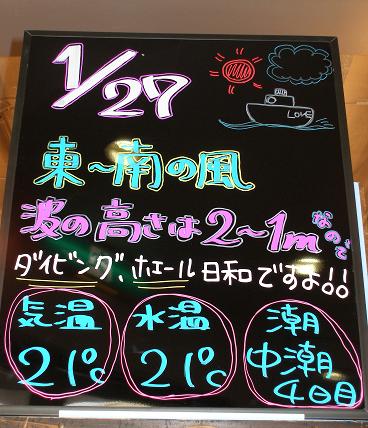 1/27
LOVE
東～南の風
波の高さは2～1mなので
ダイビング、ホエール日和ですよ!!
気温
21℃
水温
21℃
潮
中潮
4日目